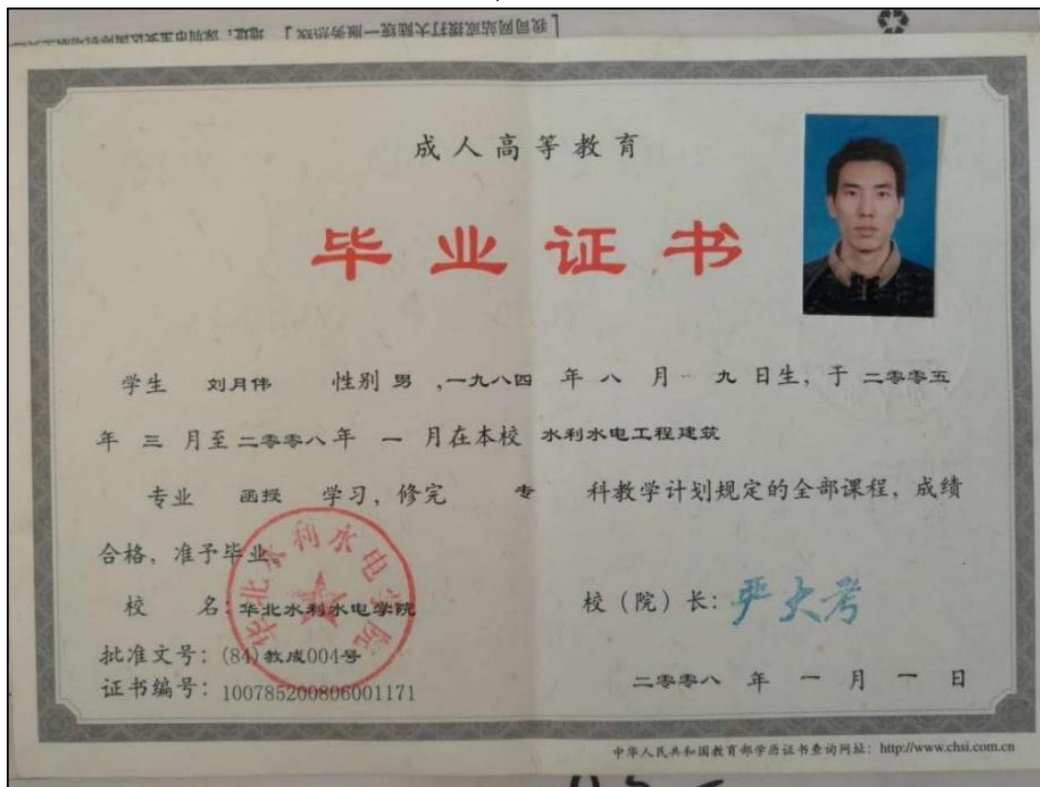 我司网站或拨打大陆统一服务热线】 地址：深圳市宝安区
成人高等教育
毕业证书
学生 刘月伟 性别 男 ,一九八四 年 八 月 九 日生，于 二零零五
年 三 月至 二零零八年 一 月在本校 水利水电工程建筑
专业 函授 学习，修完 专 科教学计划规定的全部课程，成绩
合格，准予毕业。
华北水利水电学院
校 名：华北水利水电学院
校（院）长：严大考
批准文号：(84)教成004号
证书编号：100785200806001171
二零零八 年 一 月 一 日
中华人民共和国教育部学历证书查询网址：http://www.chsi.com.cn